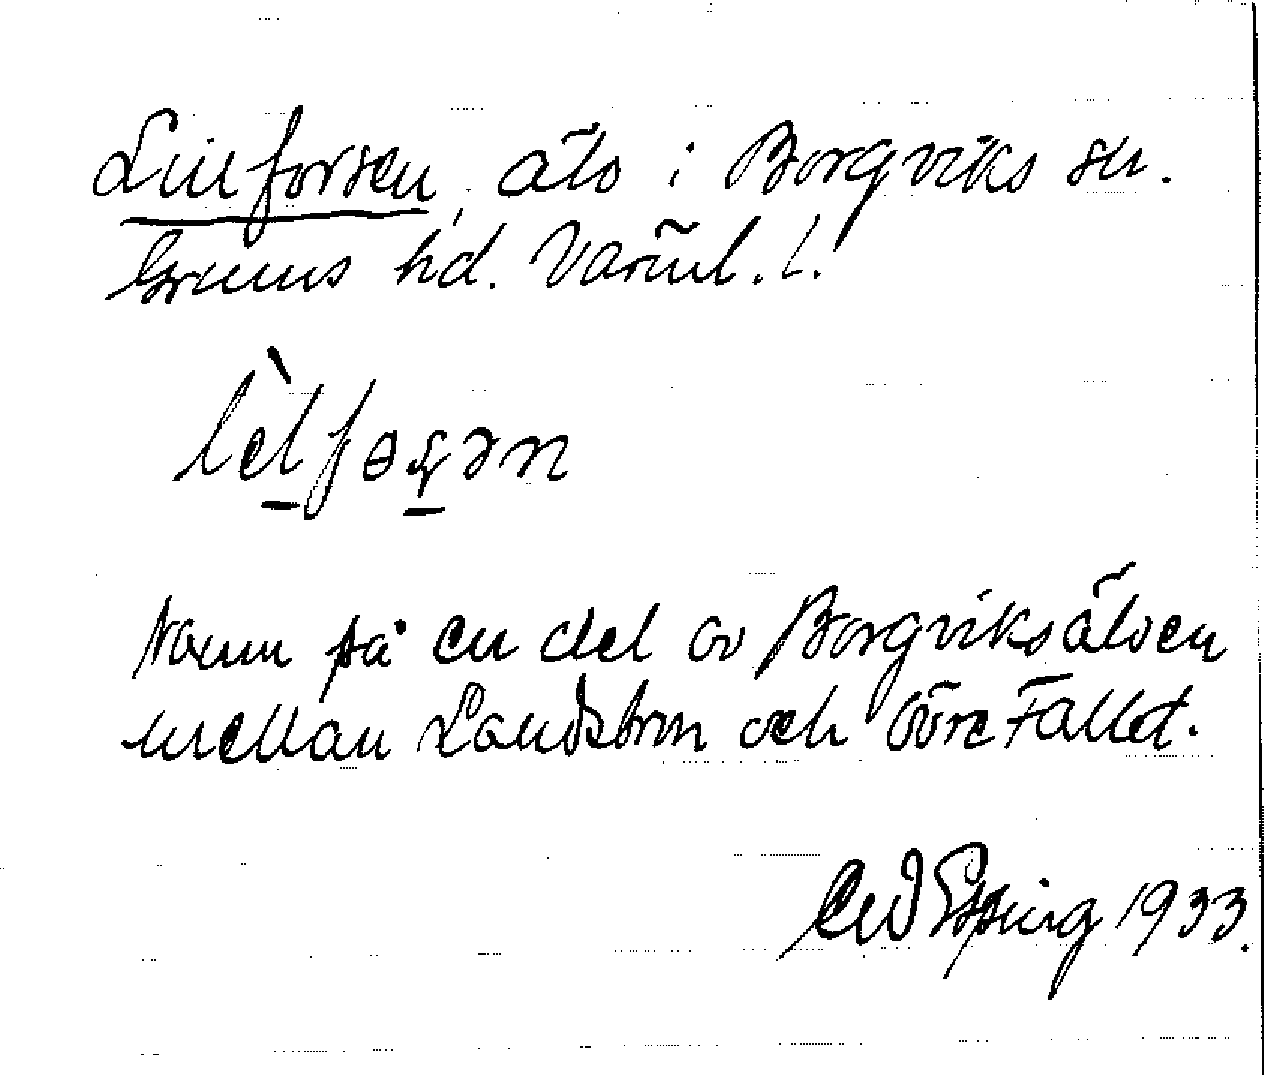 Lillforsen, älv i Borgviks sn.
Grums hd. Värml. l.
lèlfɵʂən
Namn på en del av Borgviksälven
mellan Landsbron och Övre Fallet.
Espling 1933.